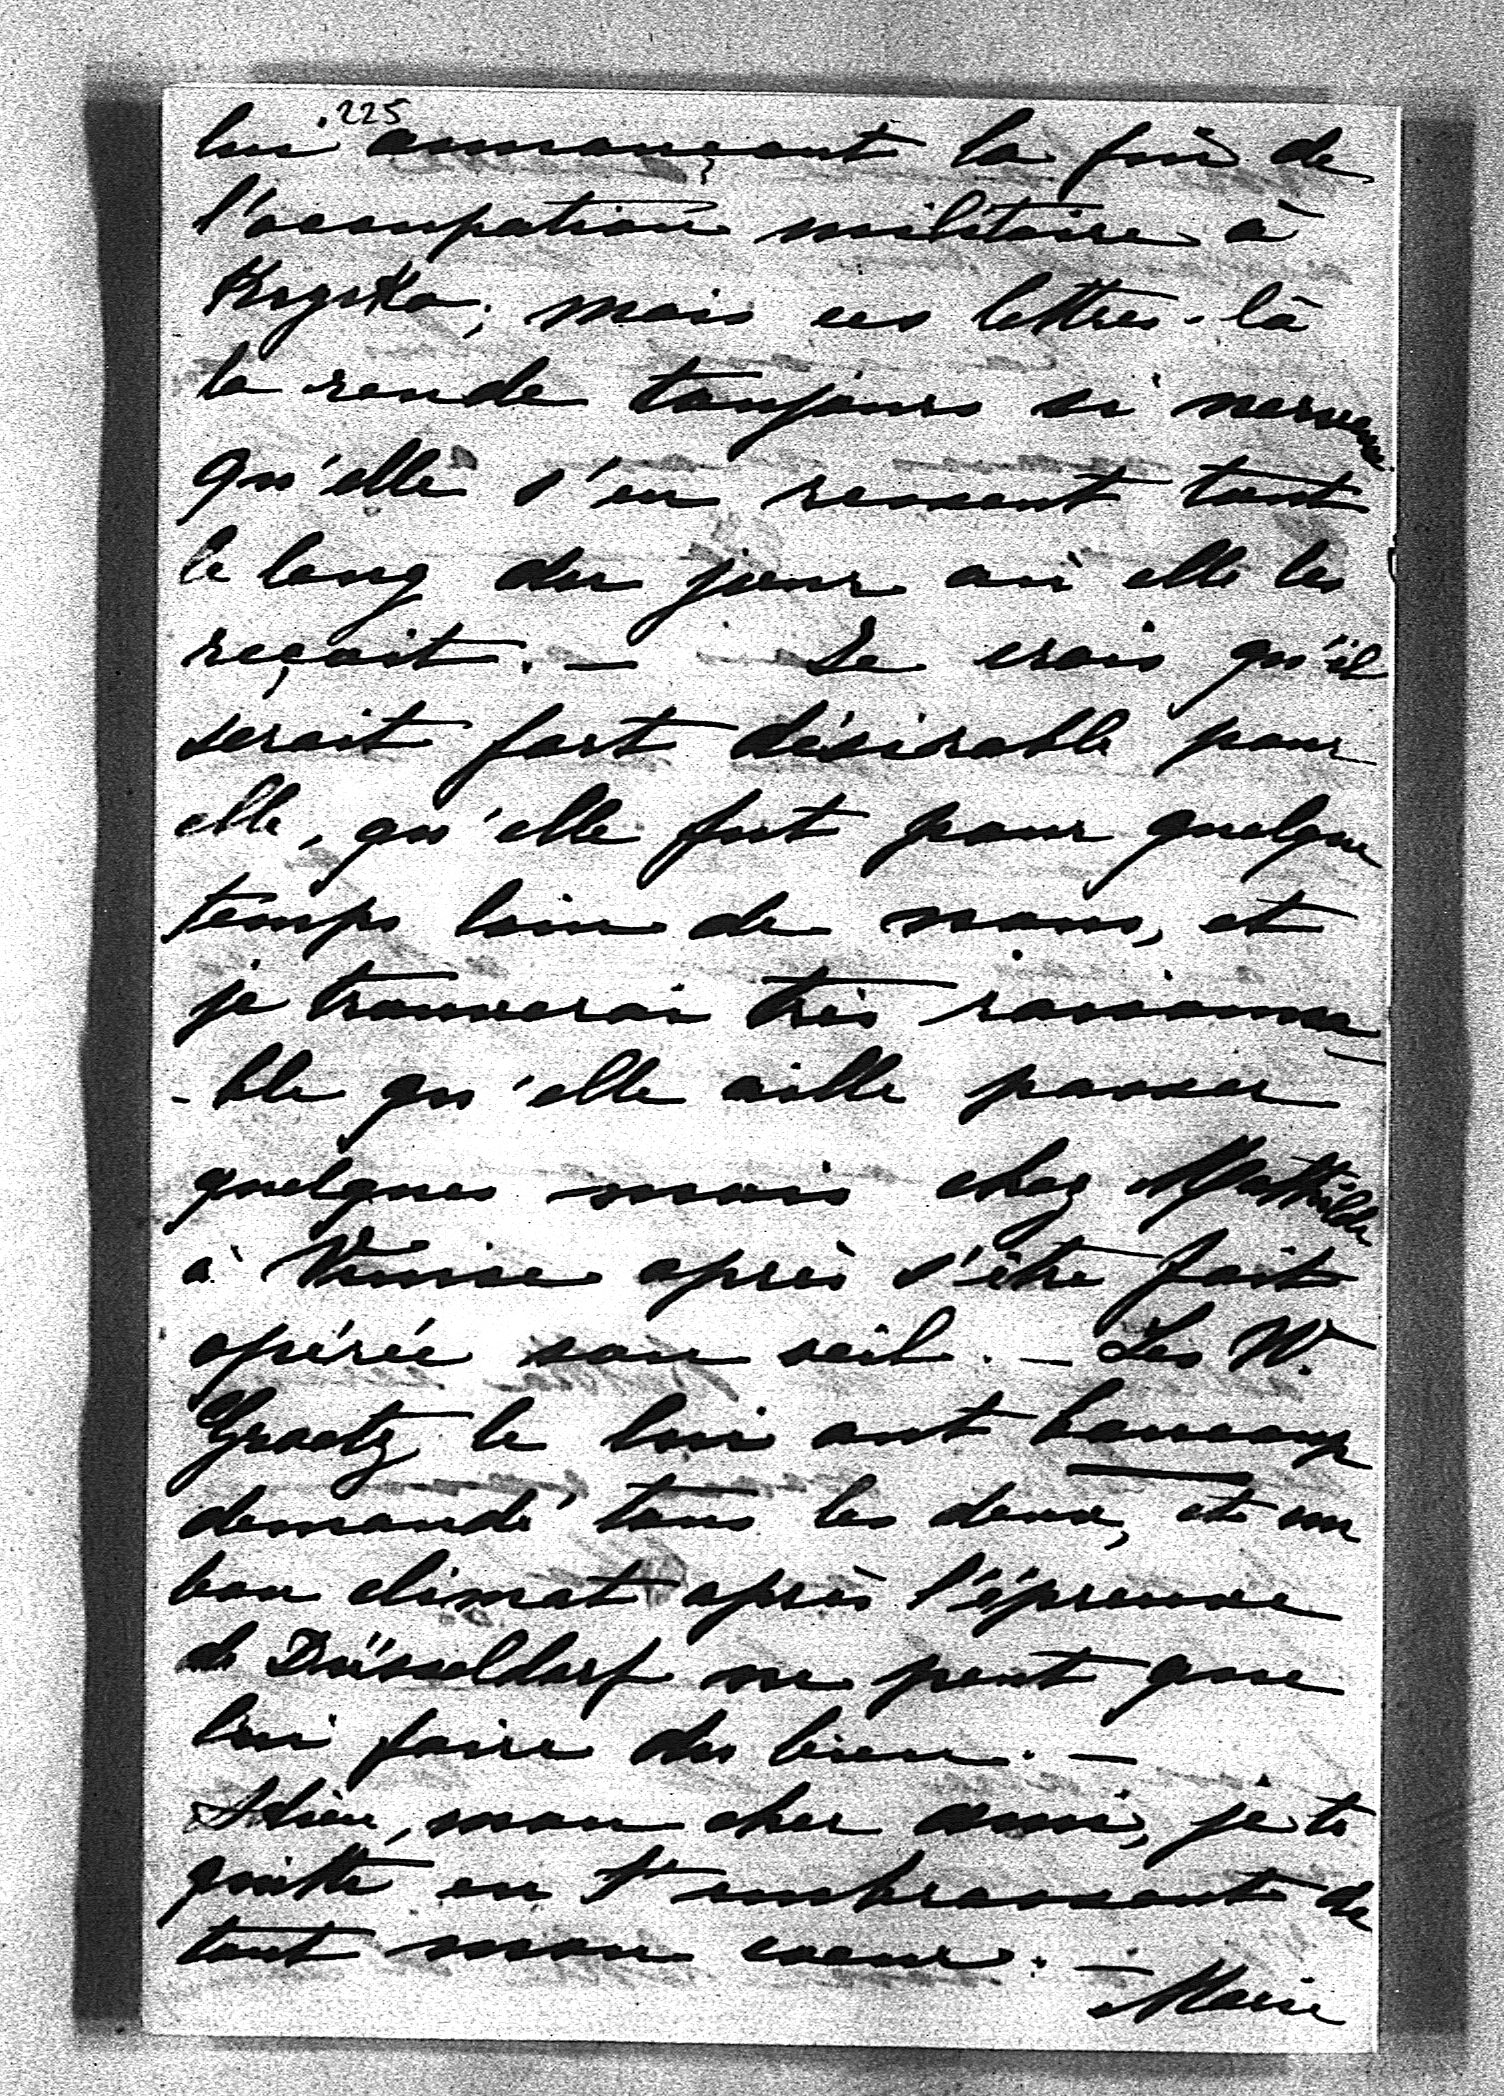 225
lui annonçant la fin de
l'occupation militaire à
mais ces lettres-là
la rende toujours si nerveuse
qu'elle s'en ressent tout
le long du jour où elle les
reçoit. — Je crois qu'il
serait fort désirable pour
elle, qu'elle fut pour quelque
temps loin de nous, et
je trouverai très raisonna
-ble qu'elle aille passer
quelques mois chez Mathilde
à Venise après s'être fait
opérée son œil. — Les W.
Graetz le lui ont beaucoup
demandé tous les deux, et un
bon climat après l'épreuve
de Düsseldorf ne peut que
lui faire du bien. —
Adieu, mon cher ami, je te
quitte en t'embrassant de
tout mon cœur. —
Marie